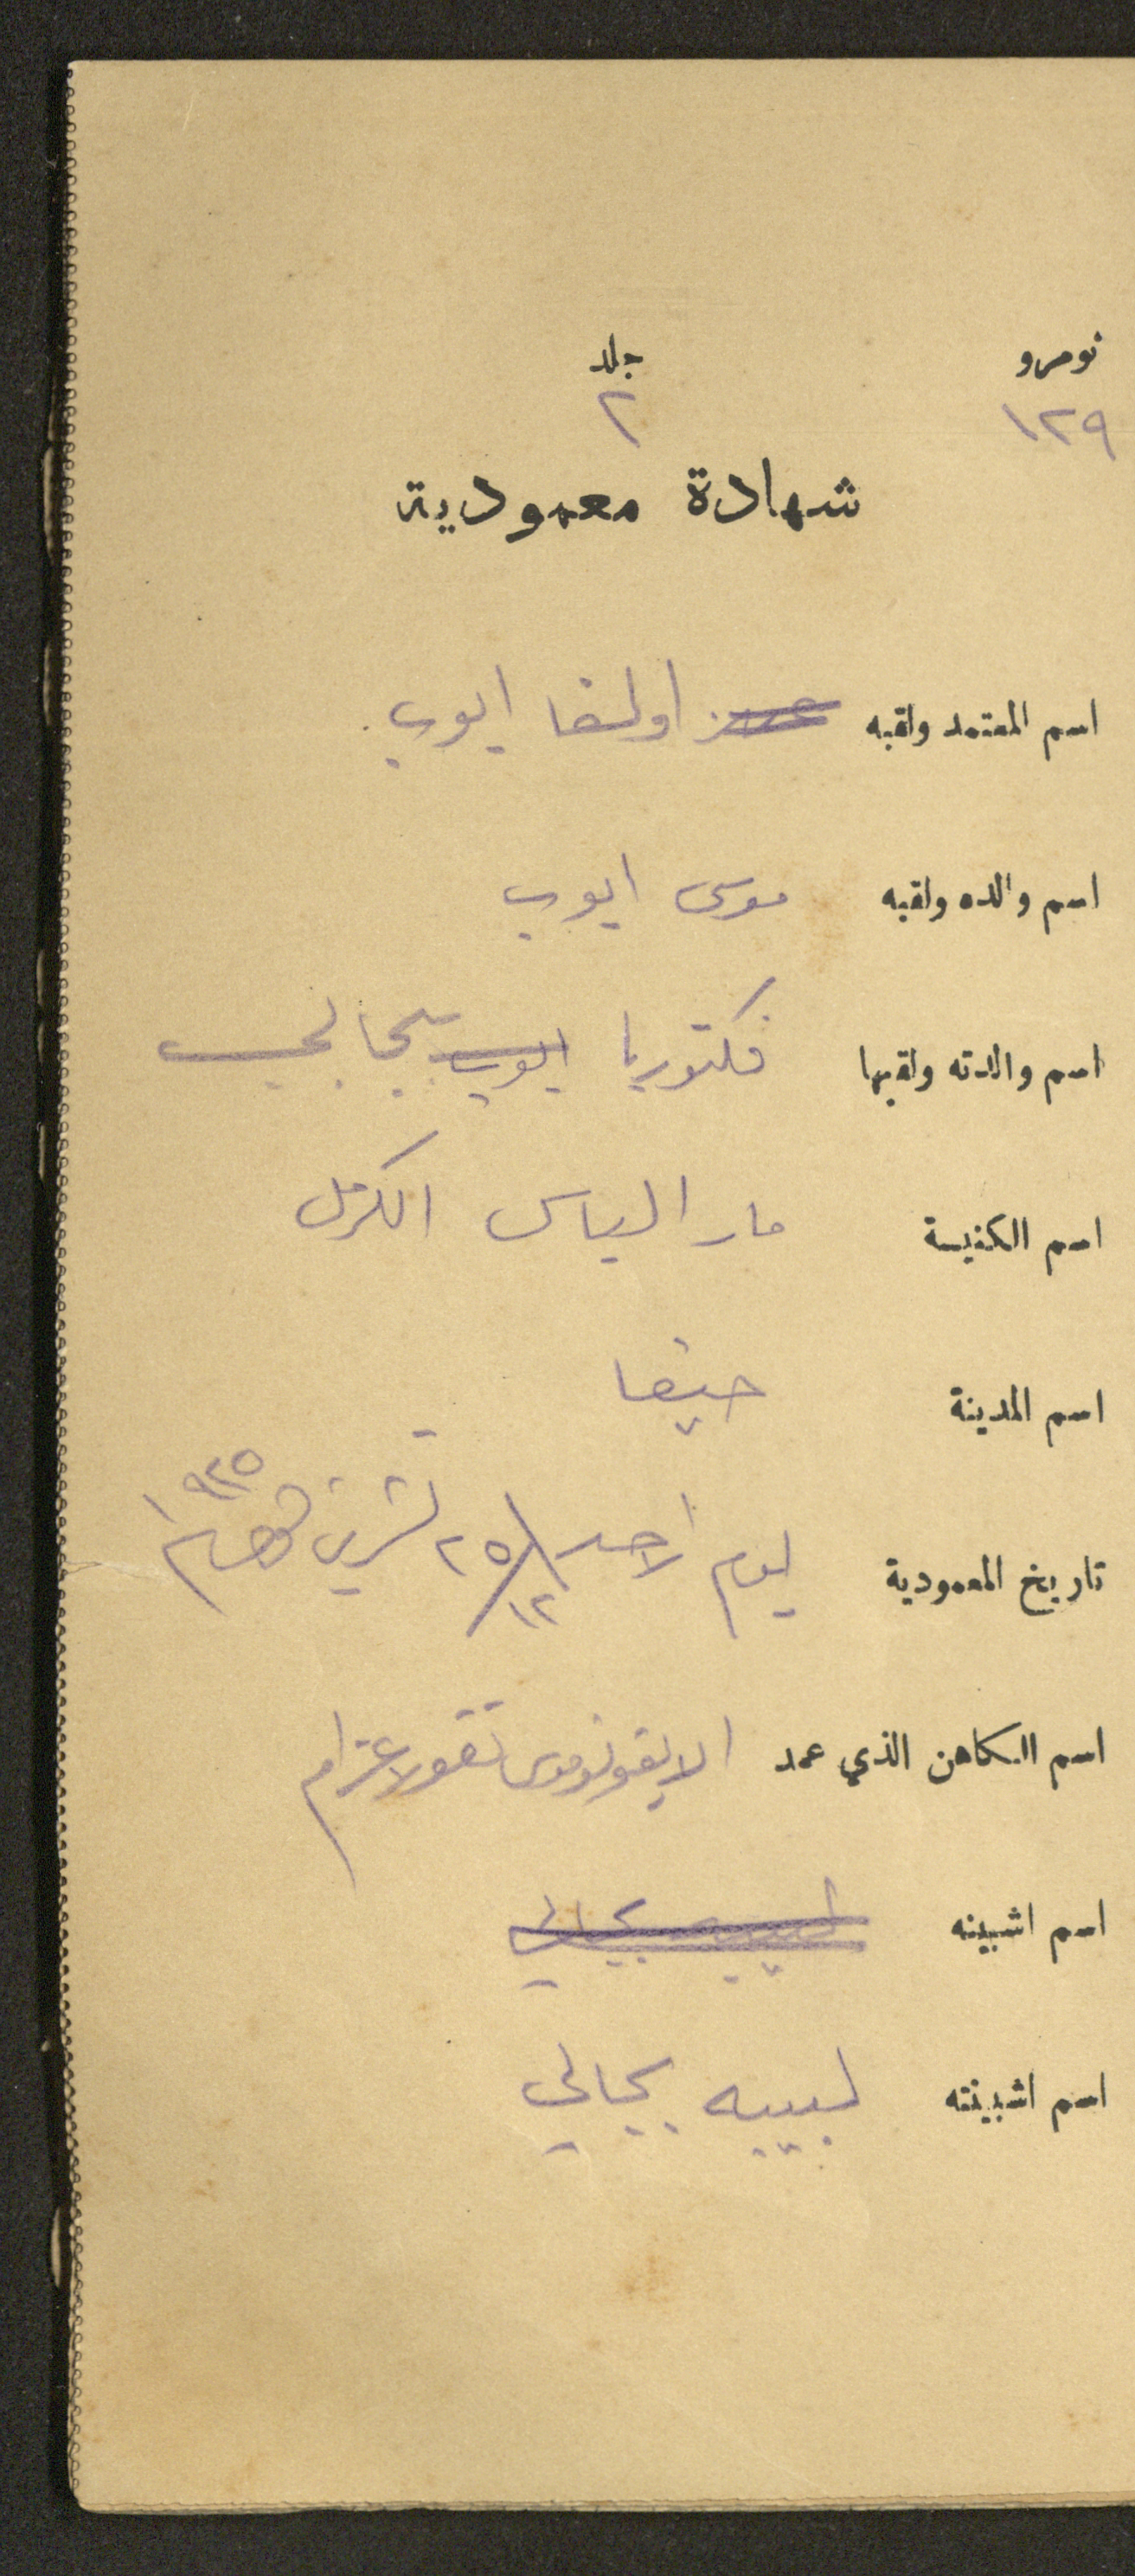 نومرو جلد
١٢٩ ٢
شهادة معمودية
اسم المعتمد ولقبه اولغا ايوب
اسم والده ولقبه موسى ايوب
اسم والدته ولقبها فكتوريا ايوب بجالي
اسم الكنيسة مار الياس الكرمل
اسم المدينة حيفا
تاريخ المعمودية يوم الاحد ٢٥/١٢ تشرين ١٩٢٥
اسم الكاهن الذي عمد الايقونوموس نقولا عزام
اسم اشبينه لبيبه بجالي
اسم اشبينته لبيبه بجالي